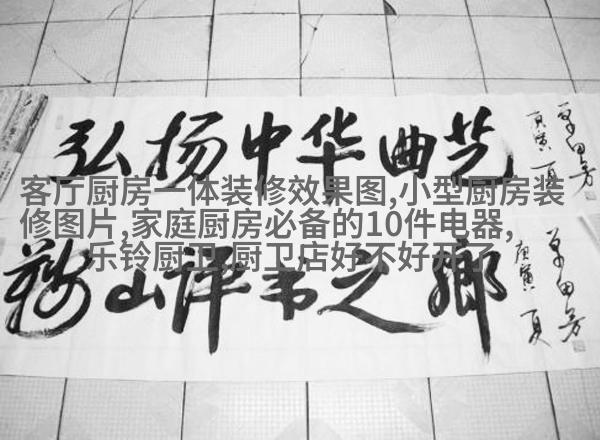 弘扬中华曲艺
庚寅 夏
单田芳
客厅厨房一体装修效果图,小型厨房装
修图片,家庭厨房必备的10件电器,
乐铃厨卫,厨卫店好不好开了
鞍山评书之鄉
庚寅 夏
单田芳